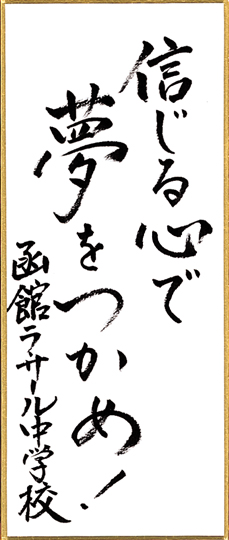 信じる心で
夢をつかめ!
函館ラ・サール中学校